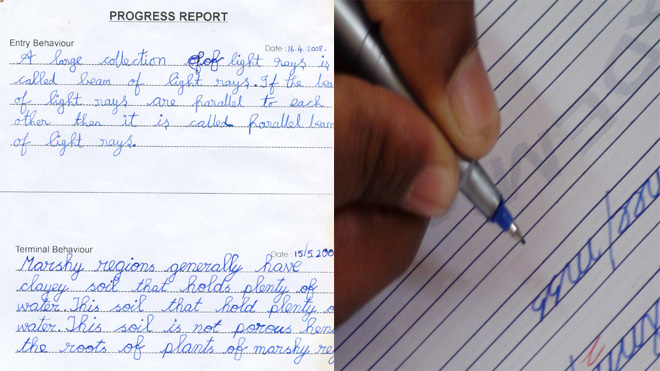 PROGRESS REPORT
Entry Behaviour
Date : 16.4.2008.
A large collection of of light rays is
called beam of light rays. If the bea
of light rays are parallel to each
other then it is called parallel beam
of light rays.
Terminal Behaviour
Date : 15/5.200
Marshy regions generally have
clayey soil that holds plenty of
water. This soil that hold plenty o
water. This soil is not porous hen
the roots of plants of marshy re